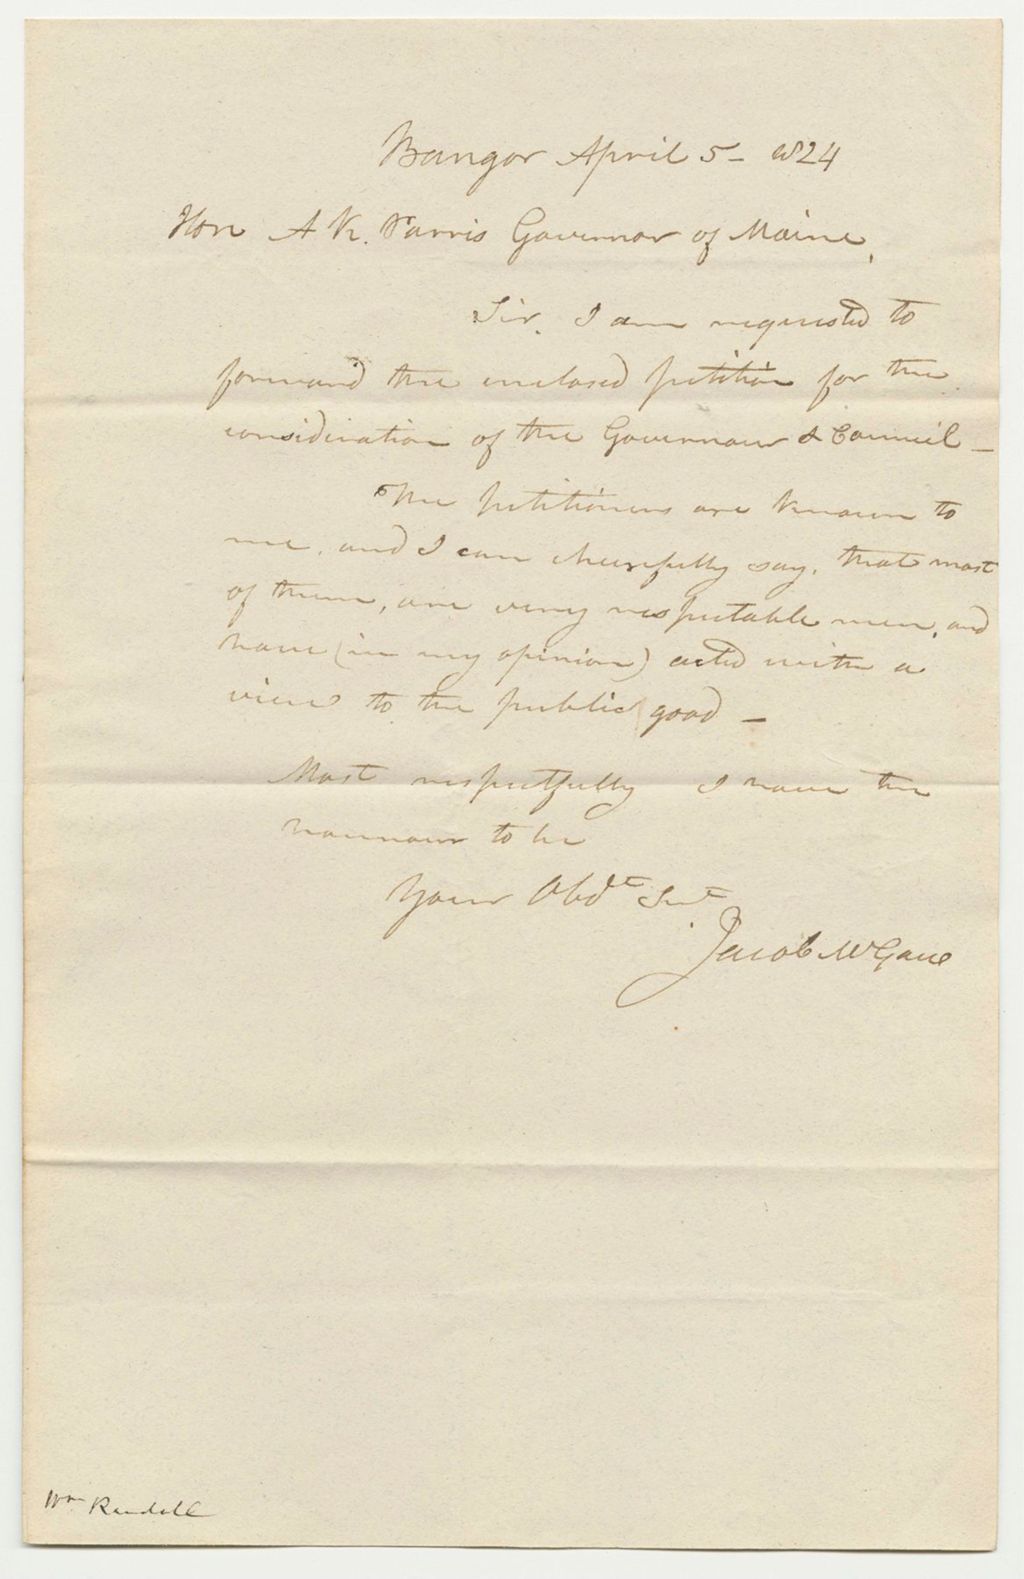 Bangor April 5 - 1824
Hon A K. Parris Governor of Maine,
Sir. I am requested to
forward the enclosed petition for the
consideration of the Governour & Council -
The petitioners are known to
me, and I can cheerfully say, that most
of them, are very respectable men, and
have (in my opinion) acted with a
view to the public good -
Most respectfully I have the
honnour to be
Your Obdt Sert
Jacob McGaw
Wm Randall